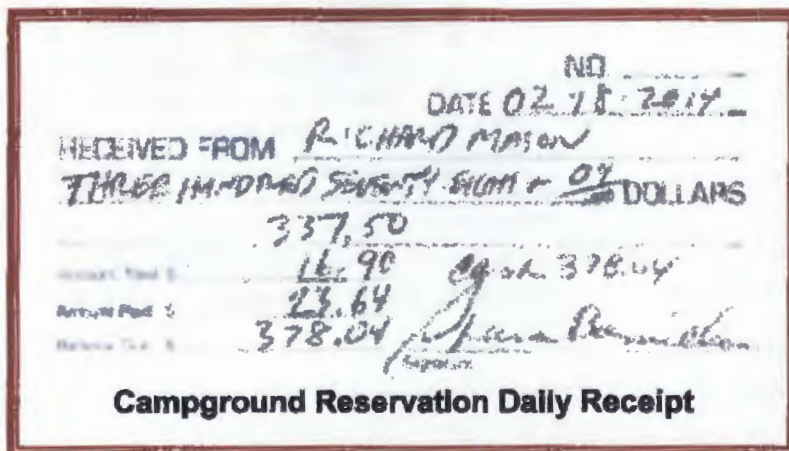 NO.
DATE 02 18 2014
RECEIVED FROM RICHARD MASON
THREE HUNDRED SEVENTY EIGHT + 04/100 DOLLARS
337.50
16.90 cash 378.04
Amount Paid $ 23.64
Balance Due $ 378.04
Campground Reservation Daily Receipt